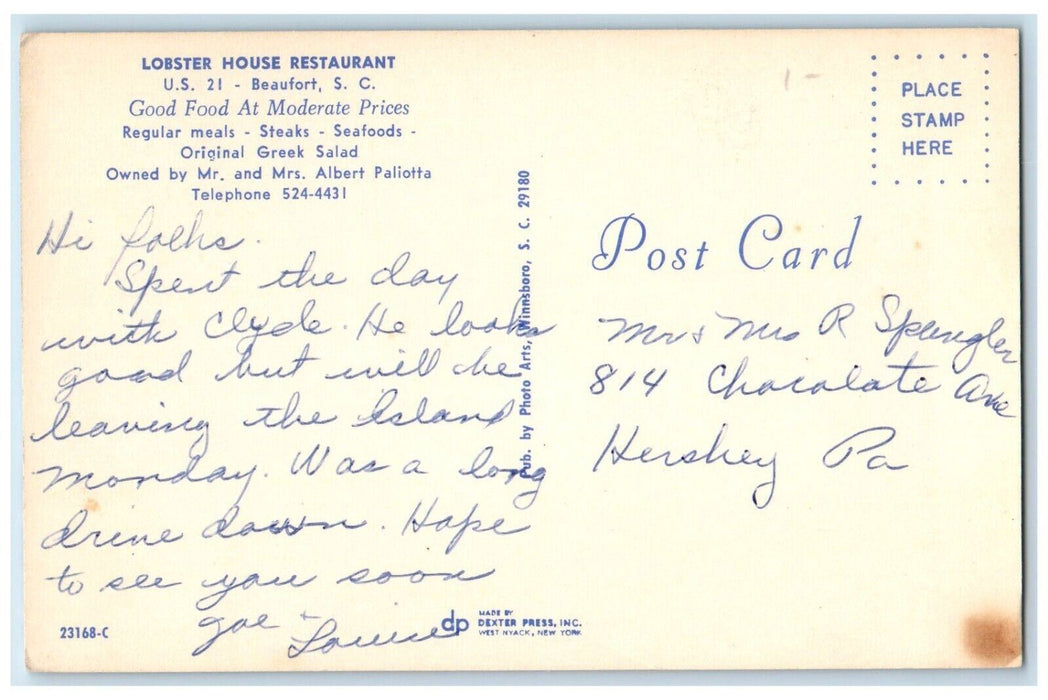 LOBSTER HOUSE RESTAURANT
U.S. 21 - Beaufort, S. C.
Good Food At Moderate Prices
Regular meals - Steaks - Seafoods -
Original Greek Salad
Owned by Mr. and Mrs. Albert Paliotta
Telephone 524-4431
Hi folks.
Spent the day
with Clyde. He looks
good but will be
leaving the Island
Monday. Was a long
drive down. Hope
to see you soon
Joe + Louise
23168-C
Pub. by Photo Arts, Winnsboro, S. C. 29180
dp
MADE BY
DEXTER PRESS, INC.
WEST NYACK, NEW YORK
PLACE
STAMP
HERE
Post Card
Mr & Mrs R Spangler
814 Chocolate Ave
Hershey Pa